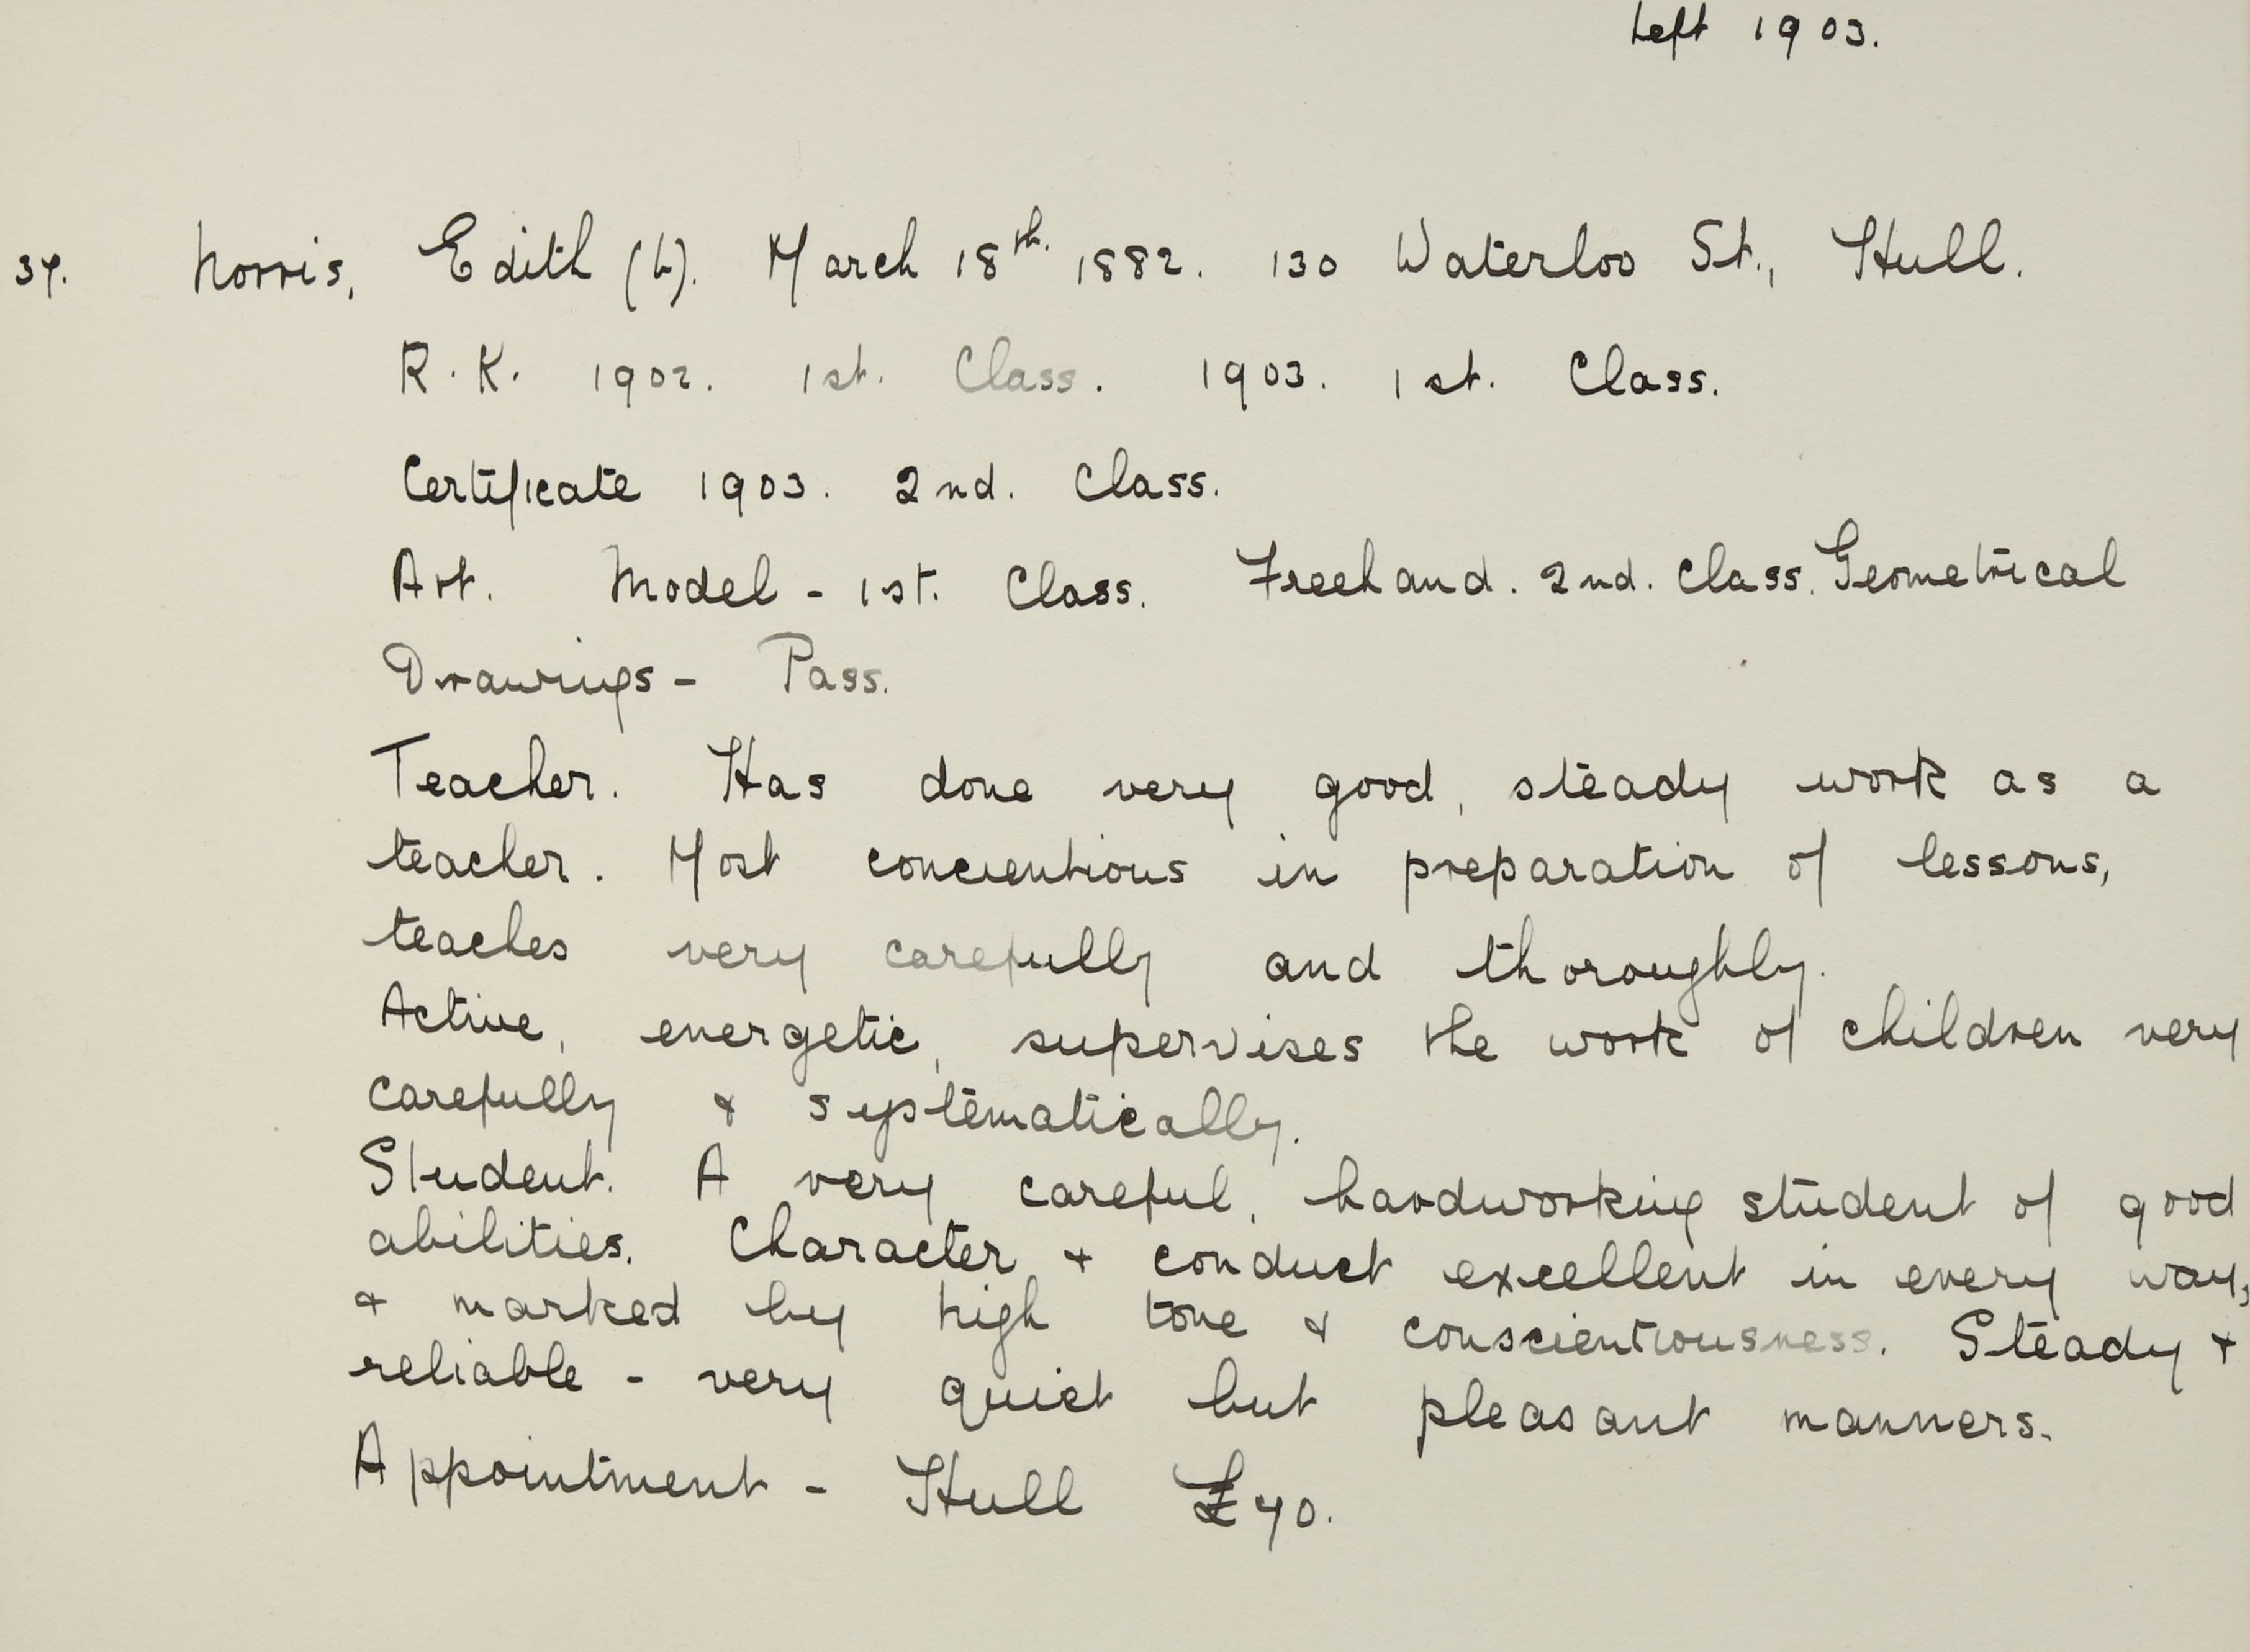 Left 1903.
37. Norris, Edith (L). March 18th. 1882. 130 Waterloo St., Hull.
R.K. 1902. 1st. Class. 1903. 1st. Class.
Certificate 1903. 2nd. Class.
Art. Model - 1st. Class. Freehand. 2nd. Class. Geometrical
Drawings - Pass.
Teacher. Has done very good, steady work as a
teacher. Most concientious in preparation of lessons,
teaches very carefully and thoroughly.
Active, energetic, supervises the work of children very
carefully & systematically.
Student. A very careful, hardworking student of good
abilities. Character & conduct excellent in every way,
& marked by high tone & conscientiousness. Steady &
reliable - very quiet but pleasant manners.
Appointment - Hull £70.